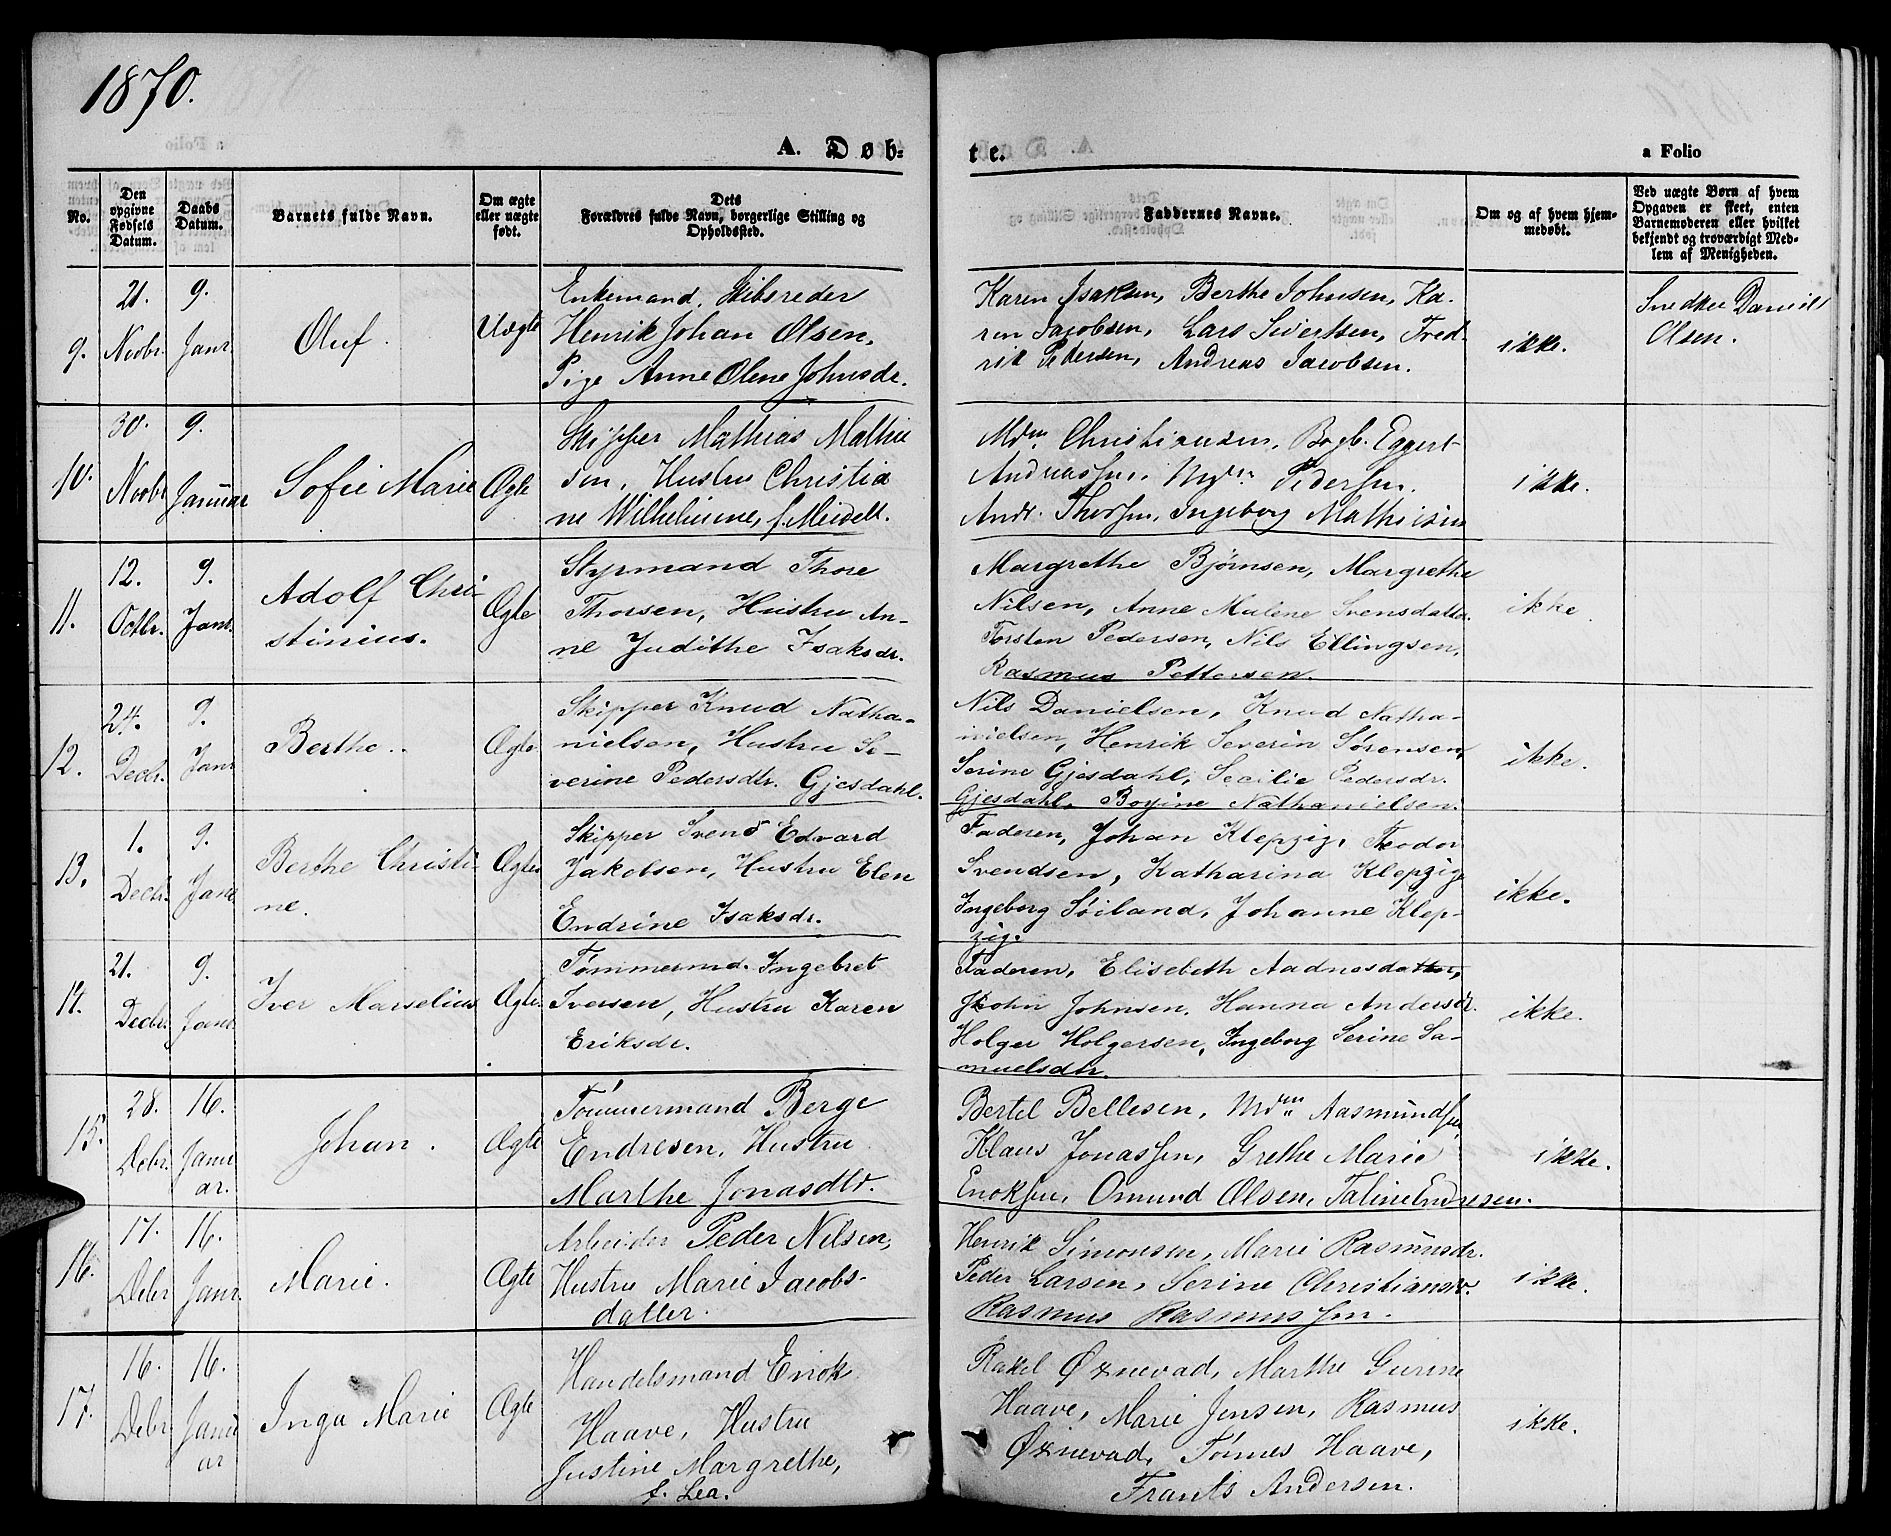 1870.
A. Døb=
te.
a Folio
No.
Den opgivne Fødsels Datum.
Daabs Datum.
Barnets fulde Navn.
Om ægte eller uægte født.
Dets Forældres fulde Navn, borgerlige Stilling og Opholdssted.
Faddernes Navne.
Om og af hvem hjem-
medøbt.
Ved uægte Børn af hvem
Opgaven er skeet, enten
Barnemoderen eller hvilket
bekjendt og troværdigt Med-
lem af Menigheden.
9.
21.
Novbr.
9.
Janr.
Oluf.
Uægte
Enkemand, Skibsreder
Henrik Johan Olsen,
Pige Anne Olene Johnsdr.
Karen Isaksen, Berthe Johnsen, Ka-
ren Jacobsen, Lars Sivertsen, Fred-
rik Pedersen, Andreas Jacobsen.
ikke.
Snedker Daniel
Olsen.
10.
30.
Novbr
9.
Januar
Sofie Marie
Ægte
Skipper Mathias Mathie
sen, Hustru Christia
ne Wilhelmine, f. Meidell.
Mdm. Christiansen, Bogb. Eggert
Andreassen, Mdm Pedersen.
Andr. Thorsen, Ingeborg Mathisen
ikke.
11.
12.
Octbr.
9.
Janr.
Adolf Chri-
stinius.
Ægte
Styrmand Thore
Thorsen, Hustru An-
ne Judithe Isaksdr.
Margrethe Bjørnsen, Margrethe
Nilsen, Anne Malene Svensdatter
Torsten Pedersen, Nils Ellingsen,
Rasmus Pettersen.
ikke
12.
24.
Decbr.
9.
Janr
Berthe.
Ægte
Skipper Knud Natha-
nielsen, Hustru Se-
verine Pedersdtr. Gjesdahl.
Nils Danielsen, Knud Natha-
nielsen, Henrik Severin Sørensen,
Serine Gjesdahl, Secilie Pedersdr.
Gjesdahl, Boyine Nathanielsen.
ikke.
13.
1.
Decbr.
9.
Janr
Berthe Christi-
ne.
Ægte
Skipper Svend Edvard
Jakobsen, Hustru Elen
Endrine Isaksdr.
Faderen, Johan Klepzig, Teodor
Svendsen, Katharina Klepzig
Ingeborg Söiland, Johanne Klep-
zig.
ikke.
14.
21.
Decbr.
9.
Janr
Iver Marselius
Ægte
Tømmermd. Ingebret
Iversen, Hustru Karen
Eriksdr.
Faderen, Elisebeth Aadnesdatter,
John Johnsen. Hanna Andersdr.
Holger Holgersen, Ingeborg Serine Sa-
muelsdtr.
ikke.
15.
28.
Debr.
16.
Janu
ar.
Johan.
Ægte
Tømmermand Berge
Endresen, Hustru
Marthe Jonasdtr.
Bertel Bellesen, Mdm Aasmundsen,
Klaus Jonassen, Grethe Marie
Enoksen, Omund Olsen, Taline Endresen.
ikke.
16.
17.
Debr
16.
Janr.
Marie.
Ægte
Arbeider Peder Nilsen,
Hustru Marie Jacobs-
datter.
Henrik Simonsen, Marie Rasmusdr.
Peder Larsen, Serine Christiansdr.
Rasmus Rasmussen.
ikke.
17.
16.
Debr
16.
Janu
ar
Inga Marie
Ægte
Handelsmand Enok
Haave, Hustru
Justine Margrethe,
f. Lea.
Rakel Øxnevad, Marthe Gurine
Haave, Marie Jensen, Rasmus
Øxnevad, Tønnes Haave,
Frants Andersen.
ikke.